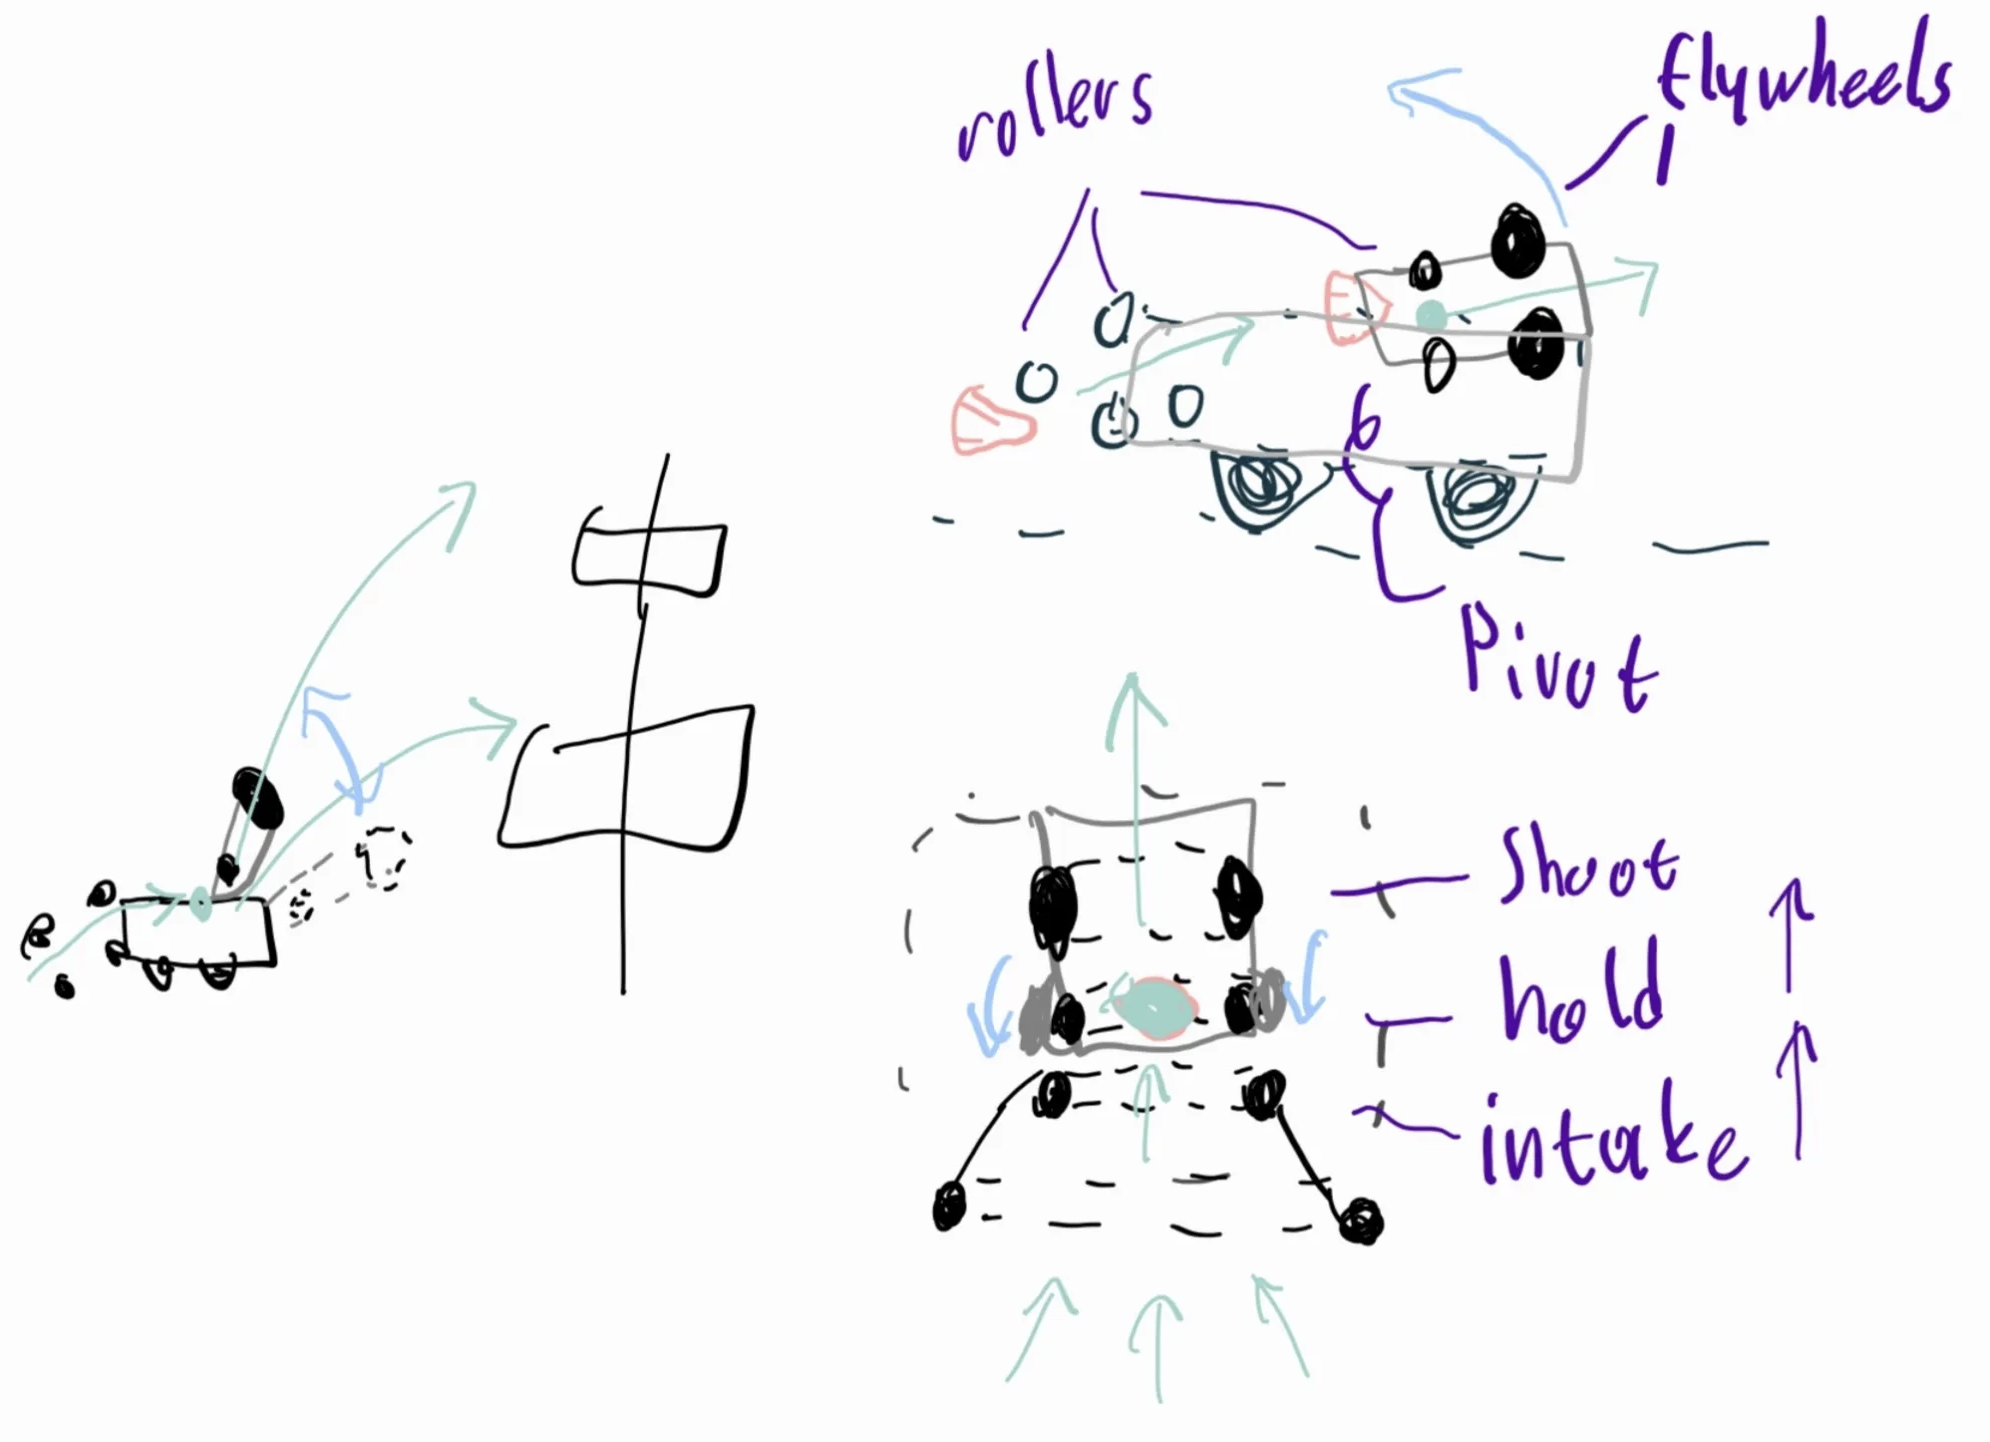 rollers
flywheels
Pivot
Shoot
hold
intake